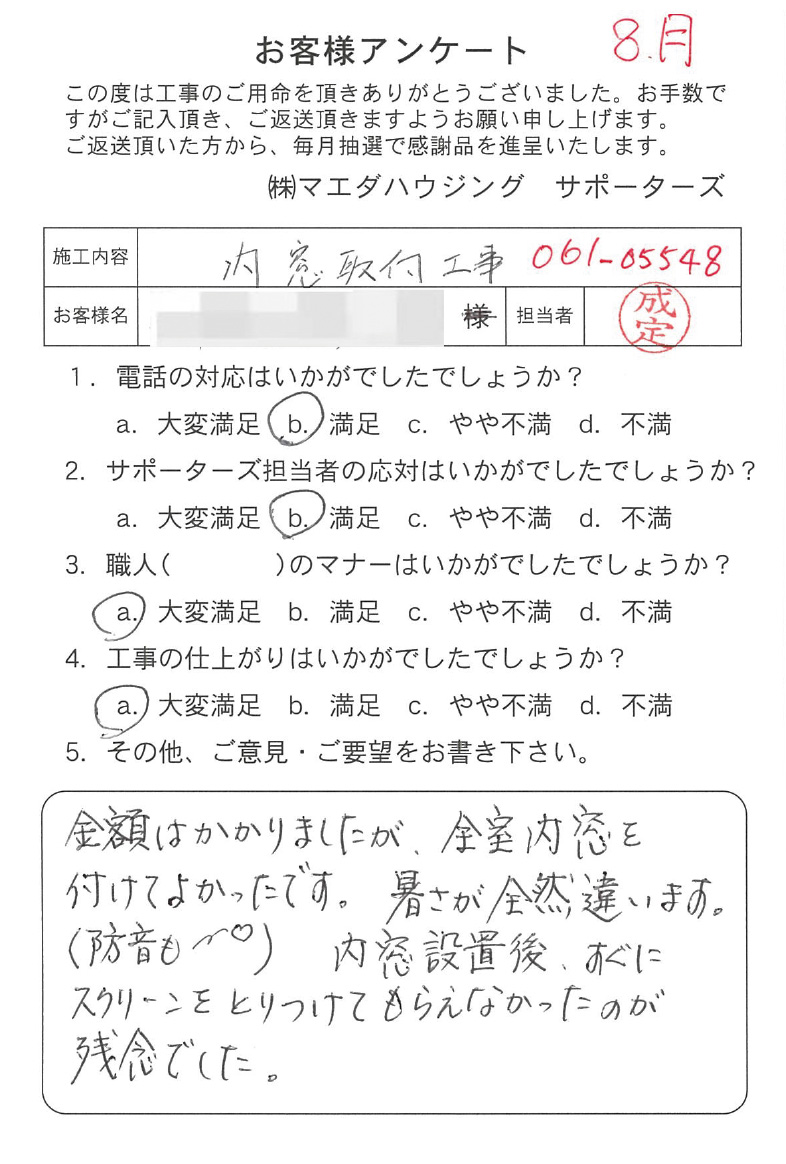 お客様アンケート 8.月
この度は工事のご用命を頂きありがとうございました。お手数で
すがご記入頂き、ご返送頂きますようお願い申し上げます。
ご返送頂いた方から、毎月抽選で感謝品を進呈いたします。
㈱マエダハウジング　サポーターズ
施工内容 内窓取付工事 061-05548
お客様名 様 担当者 成定
1. 電話の対応はいかがでしたでしょうか？
a. 大変満足 b. 満足 c. やや不満 d. 不満
2. サポーターズ担当者の応対はいかがでしたでしょうか？
a. 大変満足 b. 満足 c. やや不満 d. 不満
3. 職人(　　　　)のマナーはいかがでしたでしょうか？
a. 大変満足 b. 満足 c. やや不満 d. 不満
4. 工事の仕上がりはいかがでしたでしょうか？
a. 大変満足 b. 満足 c. やや不満 d. 不満
5. その他、ご意見・ご要望をお書き下さい。
金額はかかりましたが、全室内窓を
付けてよかったです。暑さが全然違います。
(防音も〜♡) 内窓設置後、すぐに
スクリーンをとりつけてもらえなかったのが
残念でした。